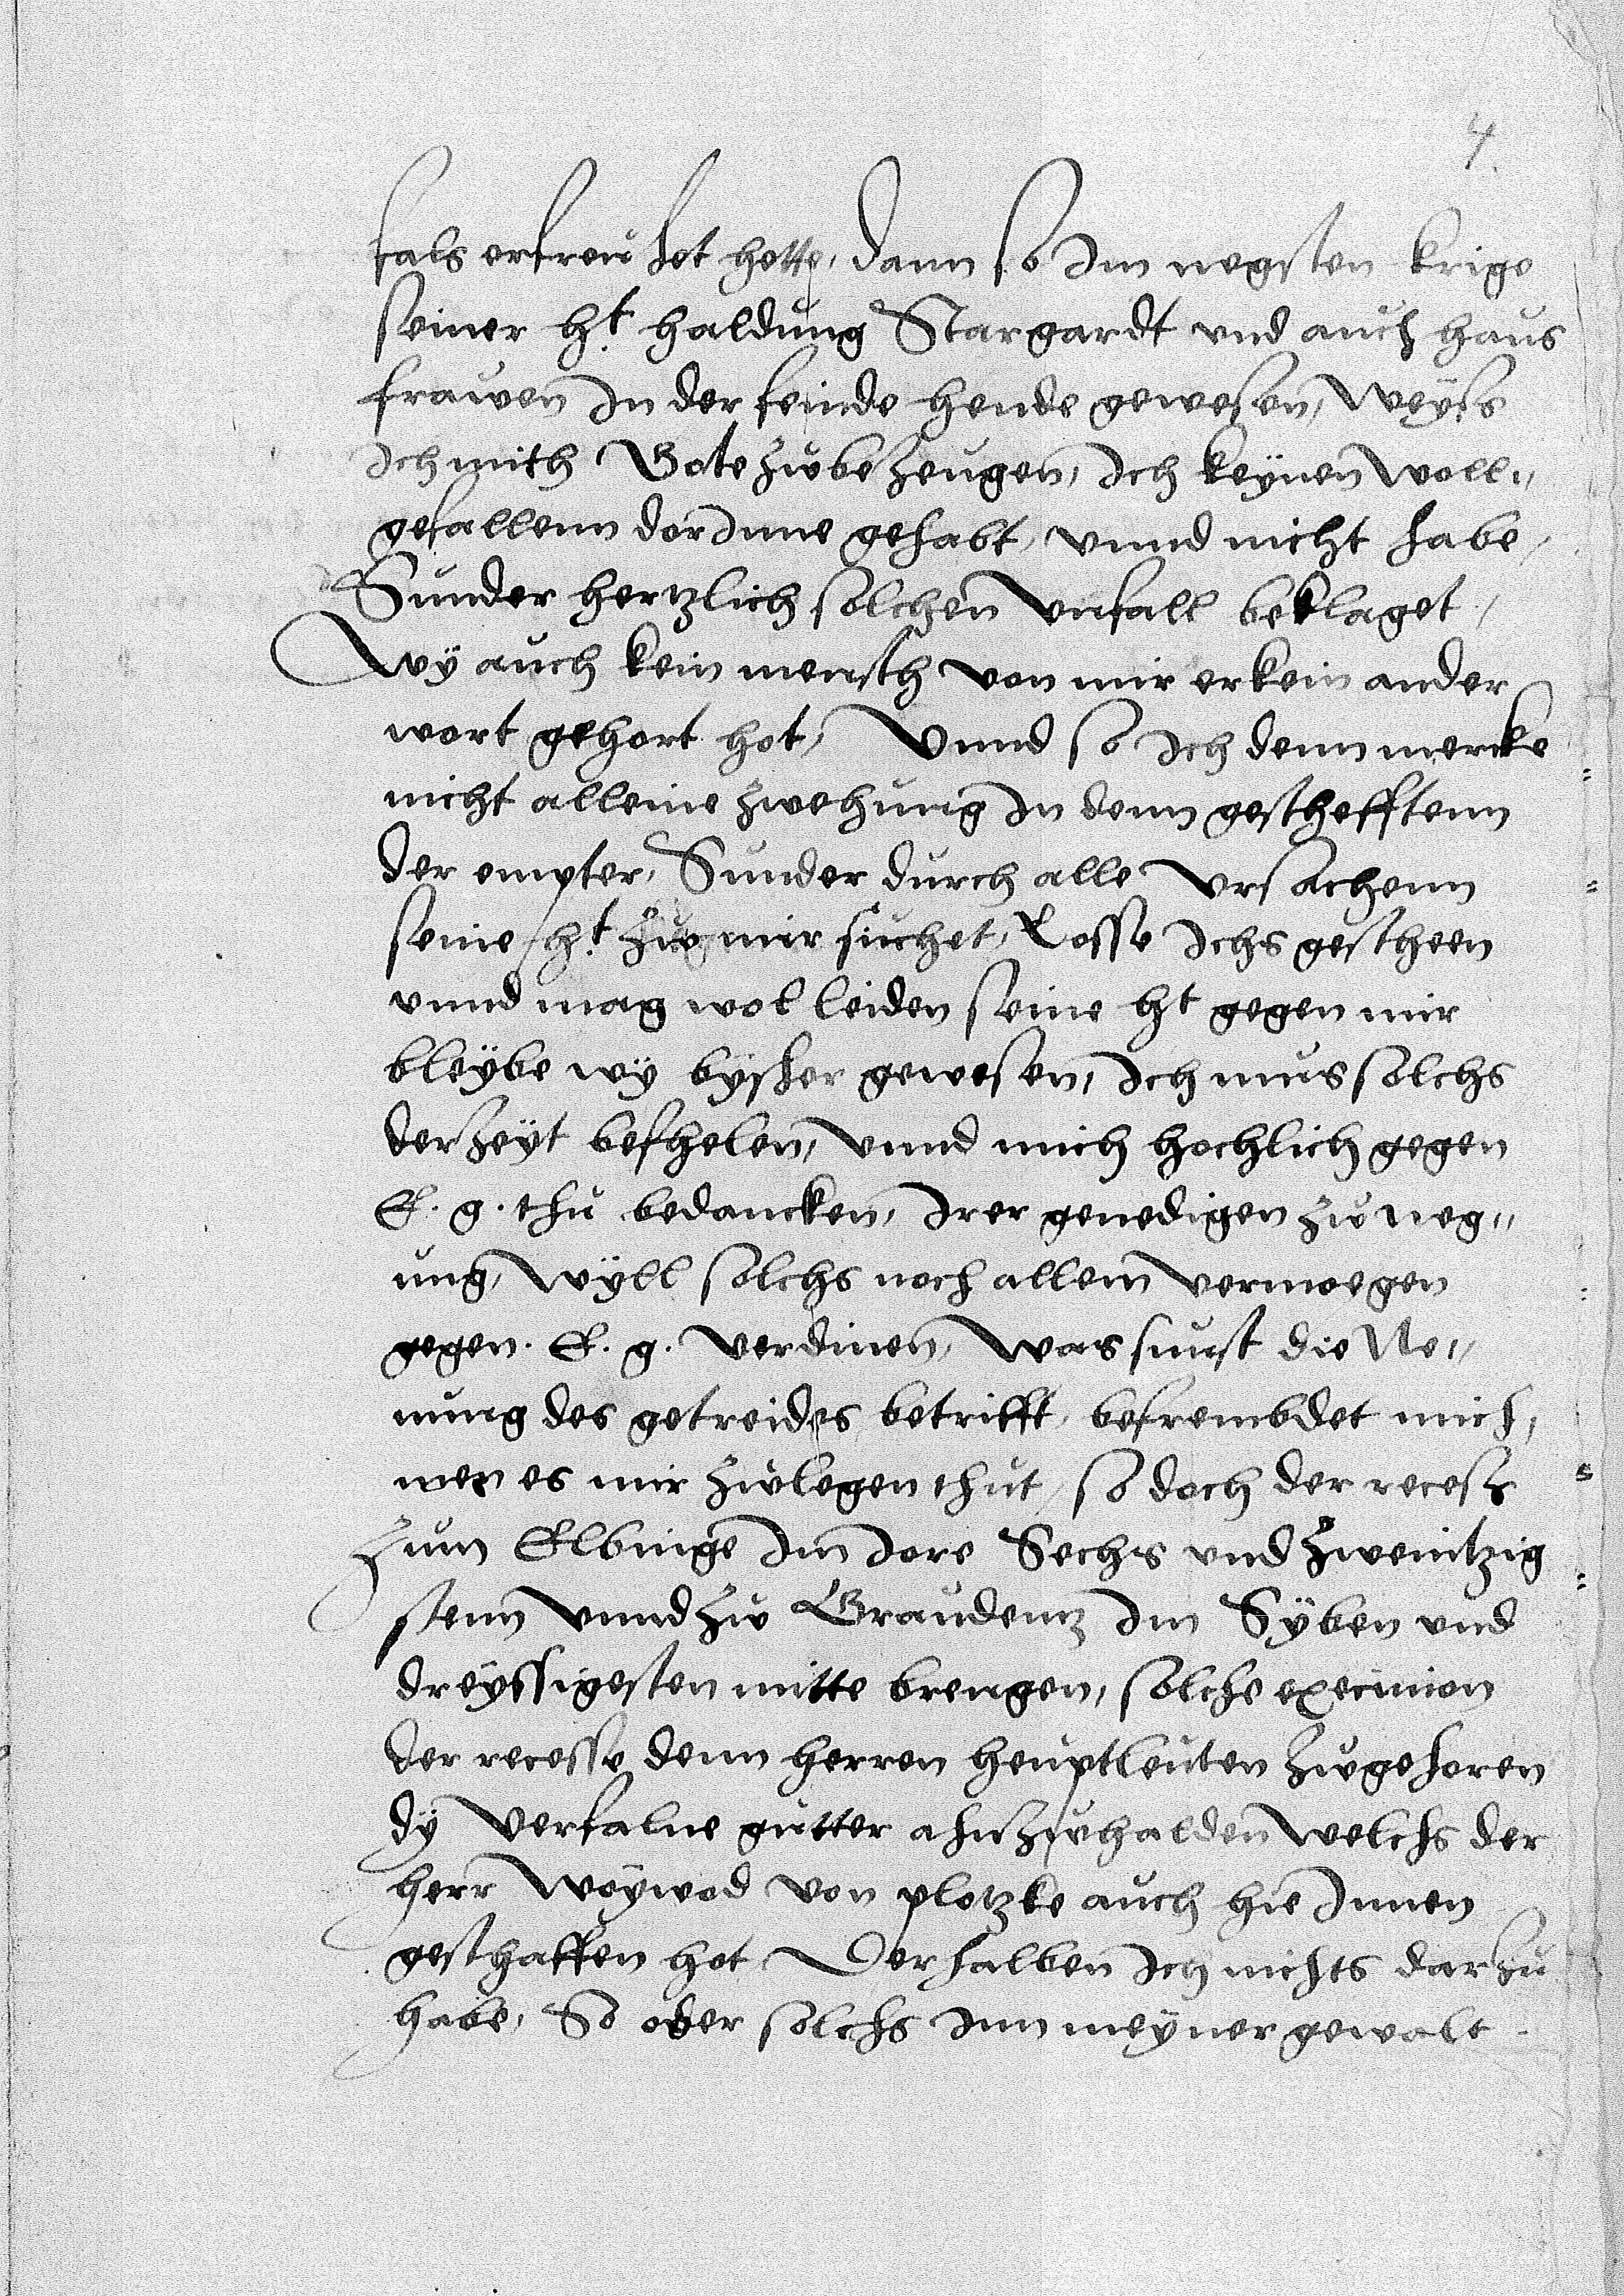 4.
fals erfreuhet hette, dann so Im negsten krige
seiner h.t haldung Stargardt vnd auch haus
frawen In der feinde hende gewesen, weyss
Ich mith Gote zubezeugen, Ich keynen woll„
gefallenn dorInne gehabt, vnnd nicht habe,
Sunder hertzlich solchen Vnfall beklaget,
wÿ auch kein mensch von mir erkein ander
wort gehort hot, Vnnd so Ich denn mercke
nicht alleine zwehung In denn geschefftenn
der empter, Sunder durch alle Vrsachenn
seine h.t zw mir suchet, Losse Ichs gescheen
vnnd mag wol leiden seine ht gegen mir
bleÿbe wÿ bÿsher gewesen, Ich mus solchs
der zeÿt befhelen, Vnnd mich hochlich gegen
E. g. thu bedancken, Irer genedigen zw neg„
ung, Wÿll solchs noch allem vermoegen
gegen. E. g. verdinen, Was sunst die Ne„
mung des getreides betrifft, befrembdet mich,
wer es mir zulegen thut, so doch der recess
zum Elbinge Im Jore Sechs vnd zweintzig
stenn vnnd zw Graudentz Im Sÿben vnd
dreÿssigesten mitte brengen, solche execucion
der recesse denn herren heuptleuten zugehoren
dÿ verfalne gutter ahnzuhalden welchs der
herr woÿwod von plotzke auch hie Innen
geschaffen hot Derhalben Ich nichts darzu
habe, So ober solchs Inn meÿner gewalt